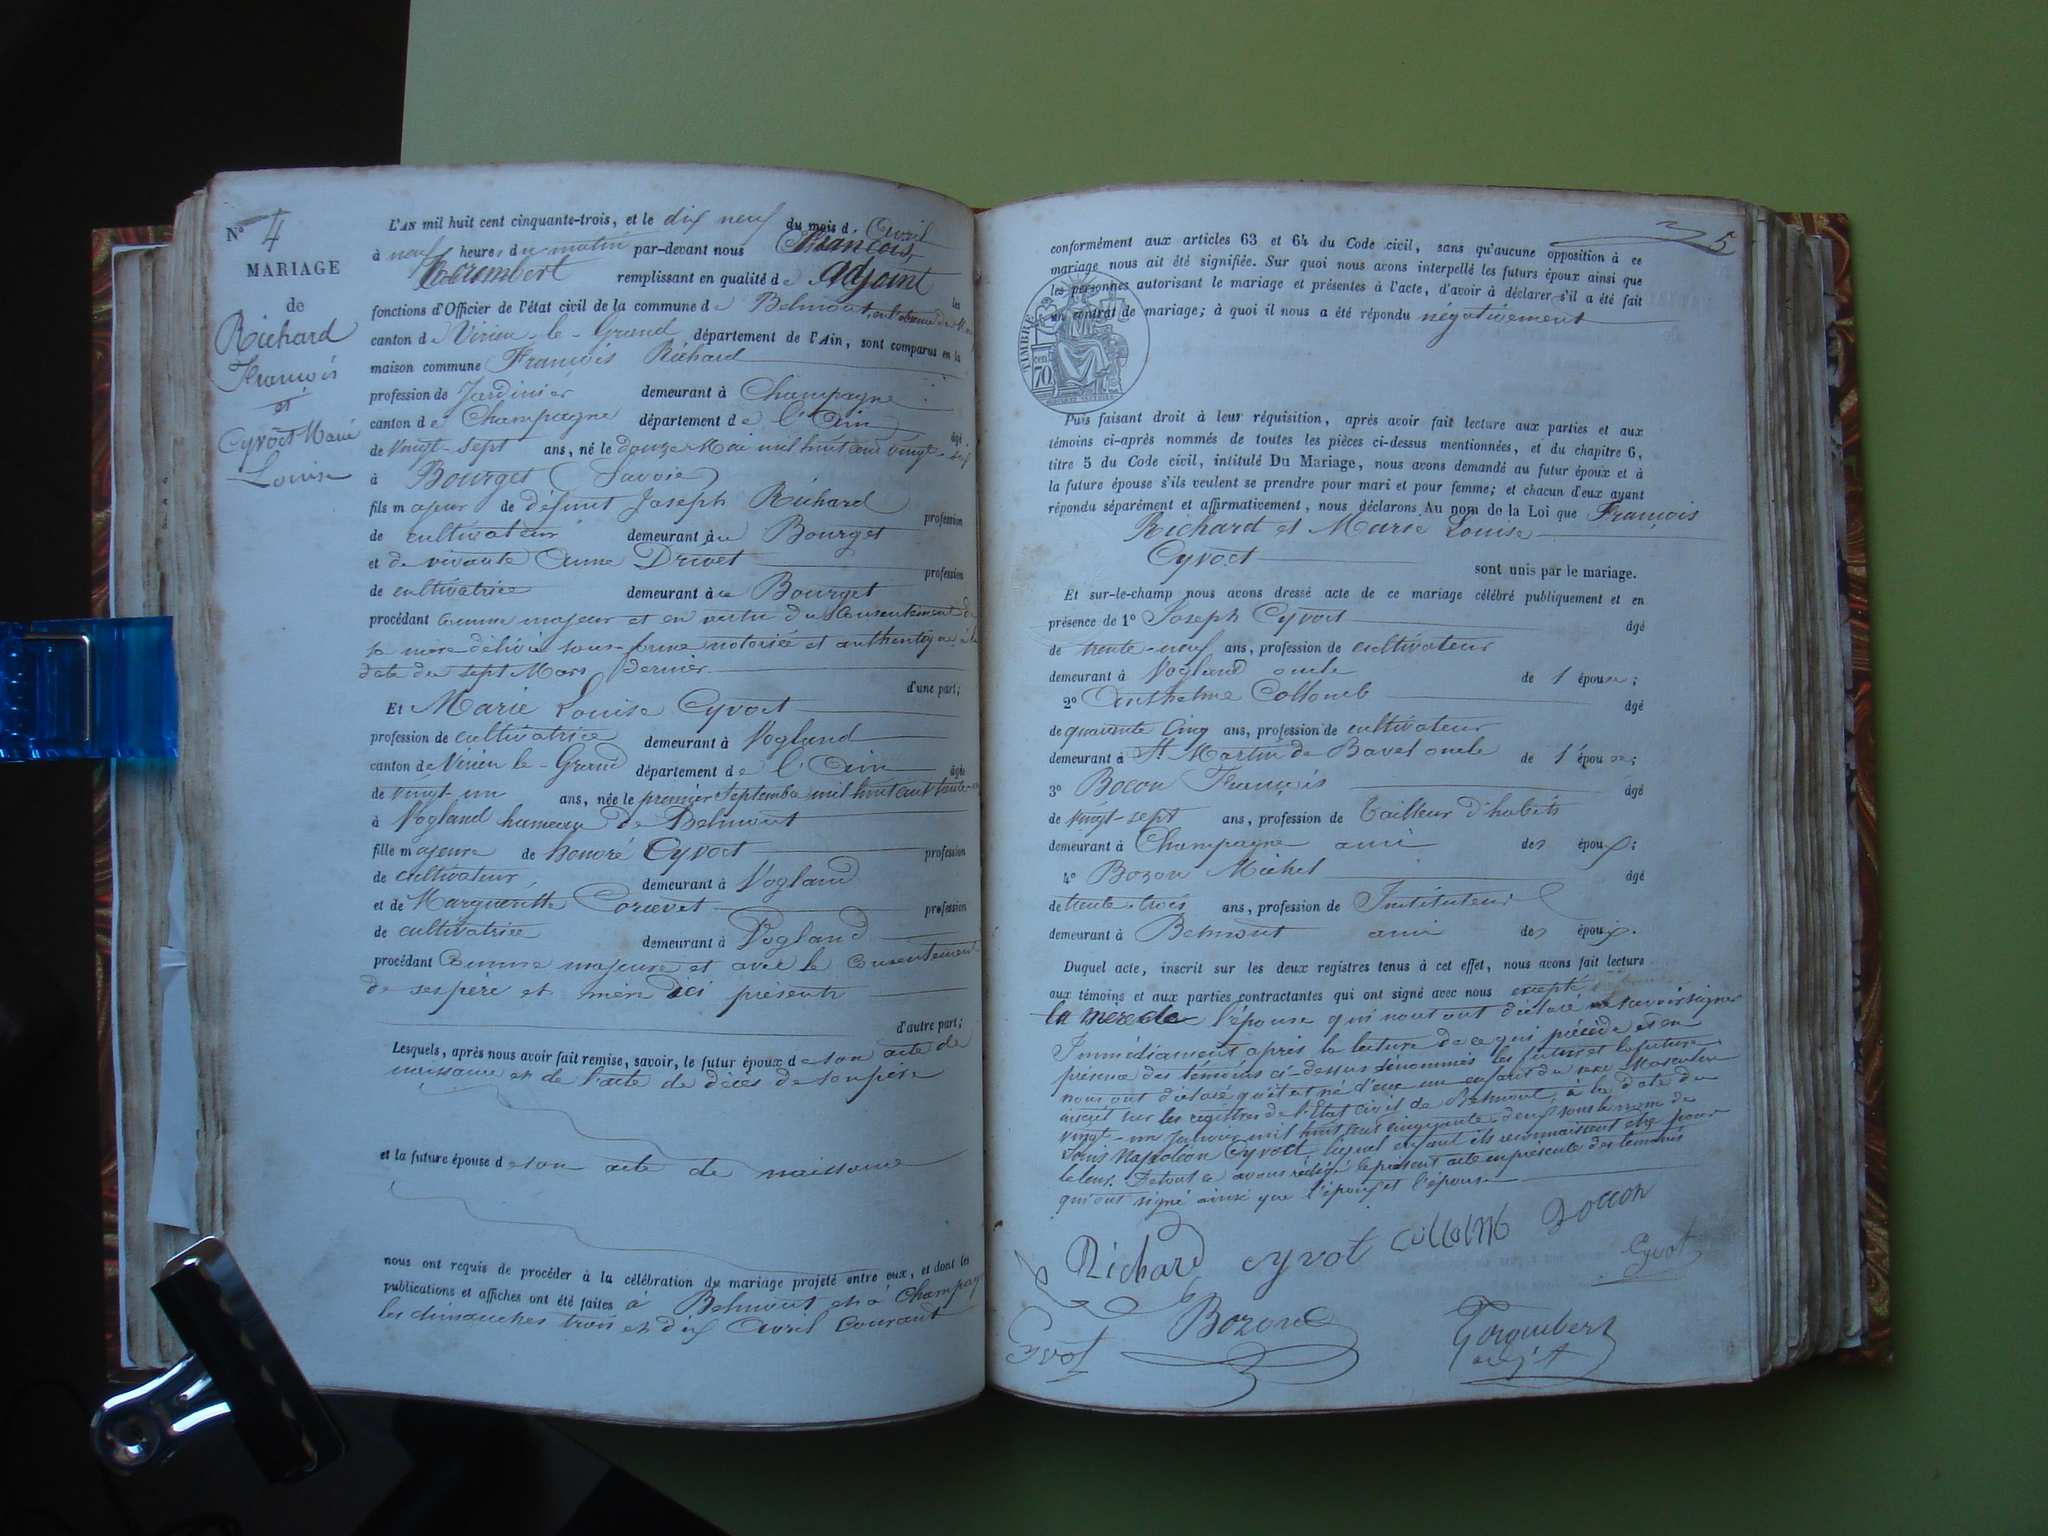 N° 4
MARIAGE
de
Richard
François
et
Cyvoct Marie
Louise
L'AN mil huit cent cinquante-trois, et le dix neuf du mois d' Avril
à neuf heures du matin par-devant nous François
remplissant en qualité de adjoint
fonctions d'Officier de l'état civil de la commune de Belmont, en l'absence du les
canton de Virieu-le-Grand département de l'Ain, sont comparus en la
maison commune François Richard
profession de Jardinier demeurant à Champagne
canton de Champagne département de l'Ain âgé
de vingt-sept ans, né le douze Mai mil huit cent vingt-
à Bourget (Savoie)
fils majeur de défunt Joseph Richard profession
de cultivateur demeurant au Bourget
et de vivante Anne Drivet profession
de cultivatrice demeurant au Bourget
procédant comme majeur et en vertu du consentement de
sa mère délivré sous forme notoriée et authentique à la
date du sept Mars dernier
d'une part;
Et Marie Louise Cyvoct
profession de cultivatrice demeurant à Vogland
canton de Virieu-le-Grand département de l'Ain âgée
de vingt-un ans, née le premier septembre mil huit cent trente-un
à Vogland hameau de Belmont
fille majeure de honoré Cyvoct profession
de cultivateur demeurant à Vogland
et de Marguerite profession
de cultivatrice demeurant à Vogland
procédant comme majeure et avec le consentement
de ses père et mère ici présents
d'autre part;
Lesquels, après nous avoir fait remise, savoir, le futur époux de son acte de
naissance et de l'acte de décès de son père
et la future épouse de son acte de naissance
nous ont requis de procéder à la célébration du mariage projeté entre eux, et dont les
publications et affiches ont été faites à Belmont et à Champagne
les dimanches trois et dix Avril courant
5
conformément aux articles 63 et 64 du Code civil, sans qu'aucune opposition à ce
mariage nous ait été signifiée. Sur quoi nous avons interpellé les futurs époux ainsi que
les personnes autorisant le mariage et présentes à l'acte, d'avoir à déclarer s'il a été fait
un contrat de mariage; à quoi il nous a été répondu négativement
TIMBRE
70 cent
Puis faisant droit à leur réquisition, après avoir fait lecture aux parties et aux
témoins ci-après nommés de toutes les pièces ci-dessus mentionnées, et du chapitre 6,
titre 5 du Code civil, intitulé Du Mariage, nous avons demandé au futur époux et à
la future épouse s'ils veulent se prendre pour mari et pour femme; et chacun d'eux ayant
répondu séparément et affirmativement, nous déclarons Au nom de la Loi que François
Richard et Marie Louise
Cyvoct sont unis par le mariage.
Et sur-le-champ nous avons dressé acte de ce mariage célébré publiquement et en
présence de 1° Joseph Cyvoct âgé
de trente-neuf ans, profession de cultivateur
demeurant à Vogland oncle de l épouse;
2° Anthelme Collomb âgé
de quarante cinq ans, profession de cultivateur
demeurant à St Martin de Bavel oncle de l'épouse;
3° Bocon François âgé
de vingt-sept ans, profession de tailleur d'habits
demeurant à Champagne ami des époux;
4° Bozon Michel âgé
de trente-trois ans, profession de Instituteur
demeurant à Belmont ami des époux.
Duquel acte, inscrit sur les deux registres tenus à cet effet, nous avons fait lecture
aux témoins et aux parties contractantes qui ont signé avec nous excepté
la mère de l'épouse qui nous ont déclaré ne savoir signer
Immédiament après la lecture de ce qui précède et en
présence des témoins ci-dessus dénommés les futur et la future
nous ont déclaré qu'il est né d'eux un enfant du sexe Masculin
inscrit sur les registres de l'Etat civil de Belmont, à la date du
vingt-un janvier mil huit cent cinquante-deux sous le nom de
Louis Napoléon Cyvoct lequel enfant ils reconnaissent être pour
le leur. De tout ce avons rédigé le présent acte en présence des témoins
qui ont signé ainsi que l'époux et l'épouse
Richard Cyvot Bocon
Cyvot
Cyvot Bozon
adjt